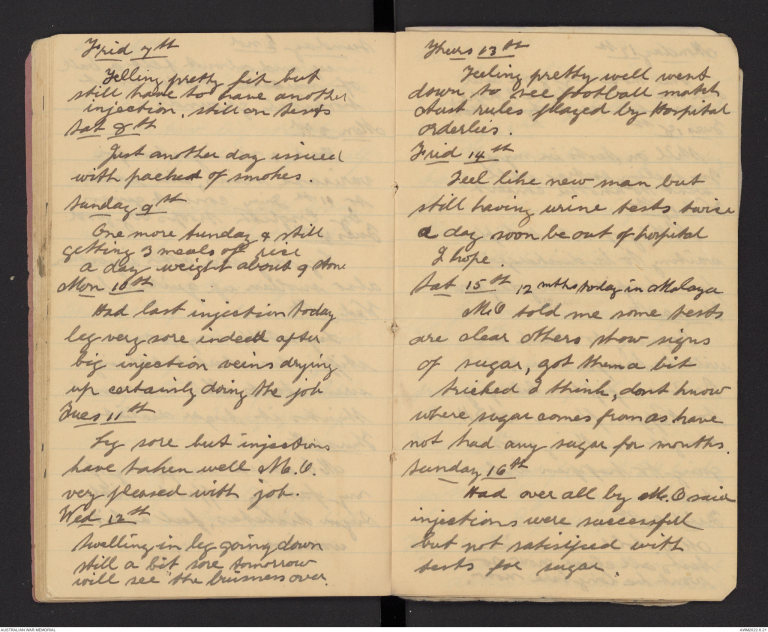 Frid 7th
Felling pretty fit but
still have to have another
injection, still on tests
Sat 8th
Just another day issued
with packed of smokes.
Sunday 9th
One more Sunday & still
getting 3 meals of rice
a day weight about 9 stone
Mon 10th
Had last injection today
leg very sore indeed after
big injection veins drying
up certainly doing the job
Tues 11th
Leg sore but injections
have taken well M.O.
very pleased with job.
Wed 12th
Swelling in leg going down
still a bit sore tomorrow
will see the business over.
Thurs 13th
Feeling pretty well went
down to see football match
Aust rules played by Hospital
orderlies.
Frid 14th
Feel like new man but
still having urine tests twice
a day soon be out of hospital
I hope.
Sat 15th 12 mths today in Malaya
M.O told me some tests
are clear others show signs
of sugar, got them a bit
tricked I think, dont know
where sugar comes from as have
not had any sugar for months.
Sunday 16th
Had over all by M.O said
injections were successful
but not satisified with
tests for sugar.
AUSTRALIAN WAR MEMORIAL
AWM2022.6.27